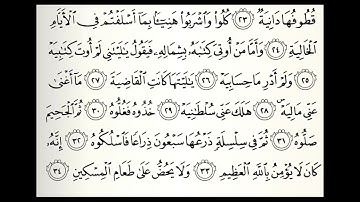 قُطُوفُهَا دَانِيَةٌ ٢٣ كُلُوا۟ وَٱشْرَبُوا۟ هَنِيٓـًٔۢا بِمَآ أَسْلَفْتُمْ فِى ٱلْأَيَّامِ
ٱلْخَالِيَةِ ٢٤ وَأَمَّا مَنْ أُوتِىَ كِتَـٰبَهُۥ بِشِمَالِهِۦ فَيَقُولُ يَـٰلَيْتَنِى لَمْ أُوتَ كِتَـٰبِيَهْ
٢٥ وَلَمْ أَدْرِ مَا حِسَابِيَهْ ٢٦ يَـٰلَيْتَهَا كَانَتِ ٱلْقَاضِيَةَ ٢٧ مَآ أَغْنَىٰ
عَنِّى مَالِيَهْ ۜ ٢٨ هَلَكَ عَنِّى سُلْطَـٰنِيَهْ ٢٩ خُذُوهُ فَغُلُّوهُ ٣٠ ثُمَّ ٱلْجَحِيمَ
صَلُّوهُ ٣١ ثُمَّ فِى سِلْسِلَةٍ ذَرْعُهَا سَبْعُونَ ذِرَاعًا فَٱسْلُكُوهُ ٣٢ إِنَّهُۥ
كَانَ لَا يُؤْمِنُ بِٱللَّهِ ٱلْعَظِيمِ ٣٣ وَلَا يَحُضُّ عَلَىٰ طَعَامِ ٱلْمِسْكِينِ ٣٤